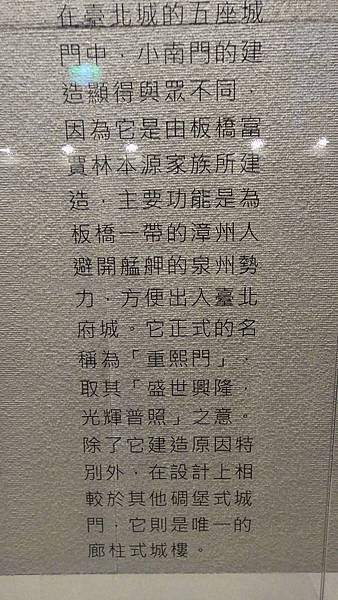 在臺北城的五座城
門中，小南門的建
造顯得與眾不同，
因為它是由板橋富
賈林本源家族所建
造，主要功能是為
板橋一帶的漳州人
避開艋舺的泉州勢
力，方便出入臺北
府城。它正式的名
稱為「重熙門」，
取其「盛世興隆，
光輝普照」之意。
除了它建造原因特
別外，在設計上相
較於其他碉堡式城
門，它則是唯一的
廊柱式城樓。